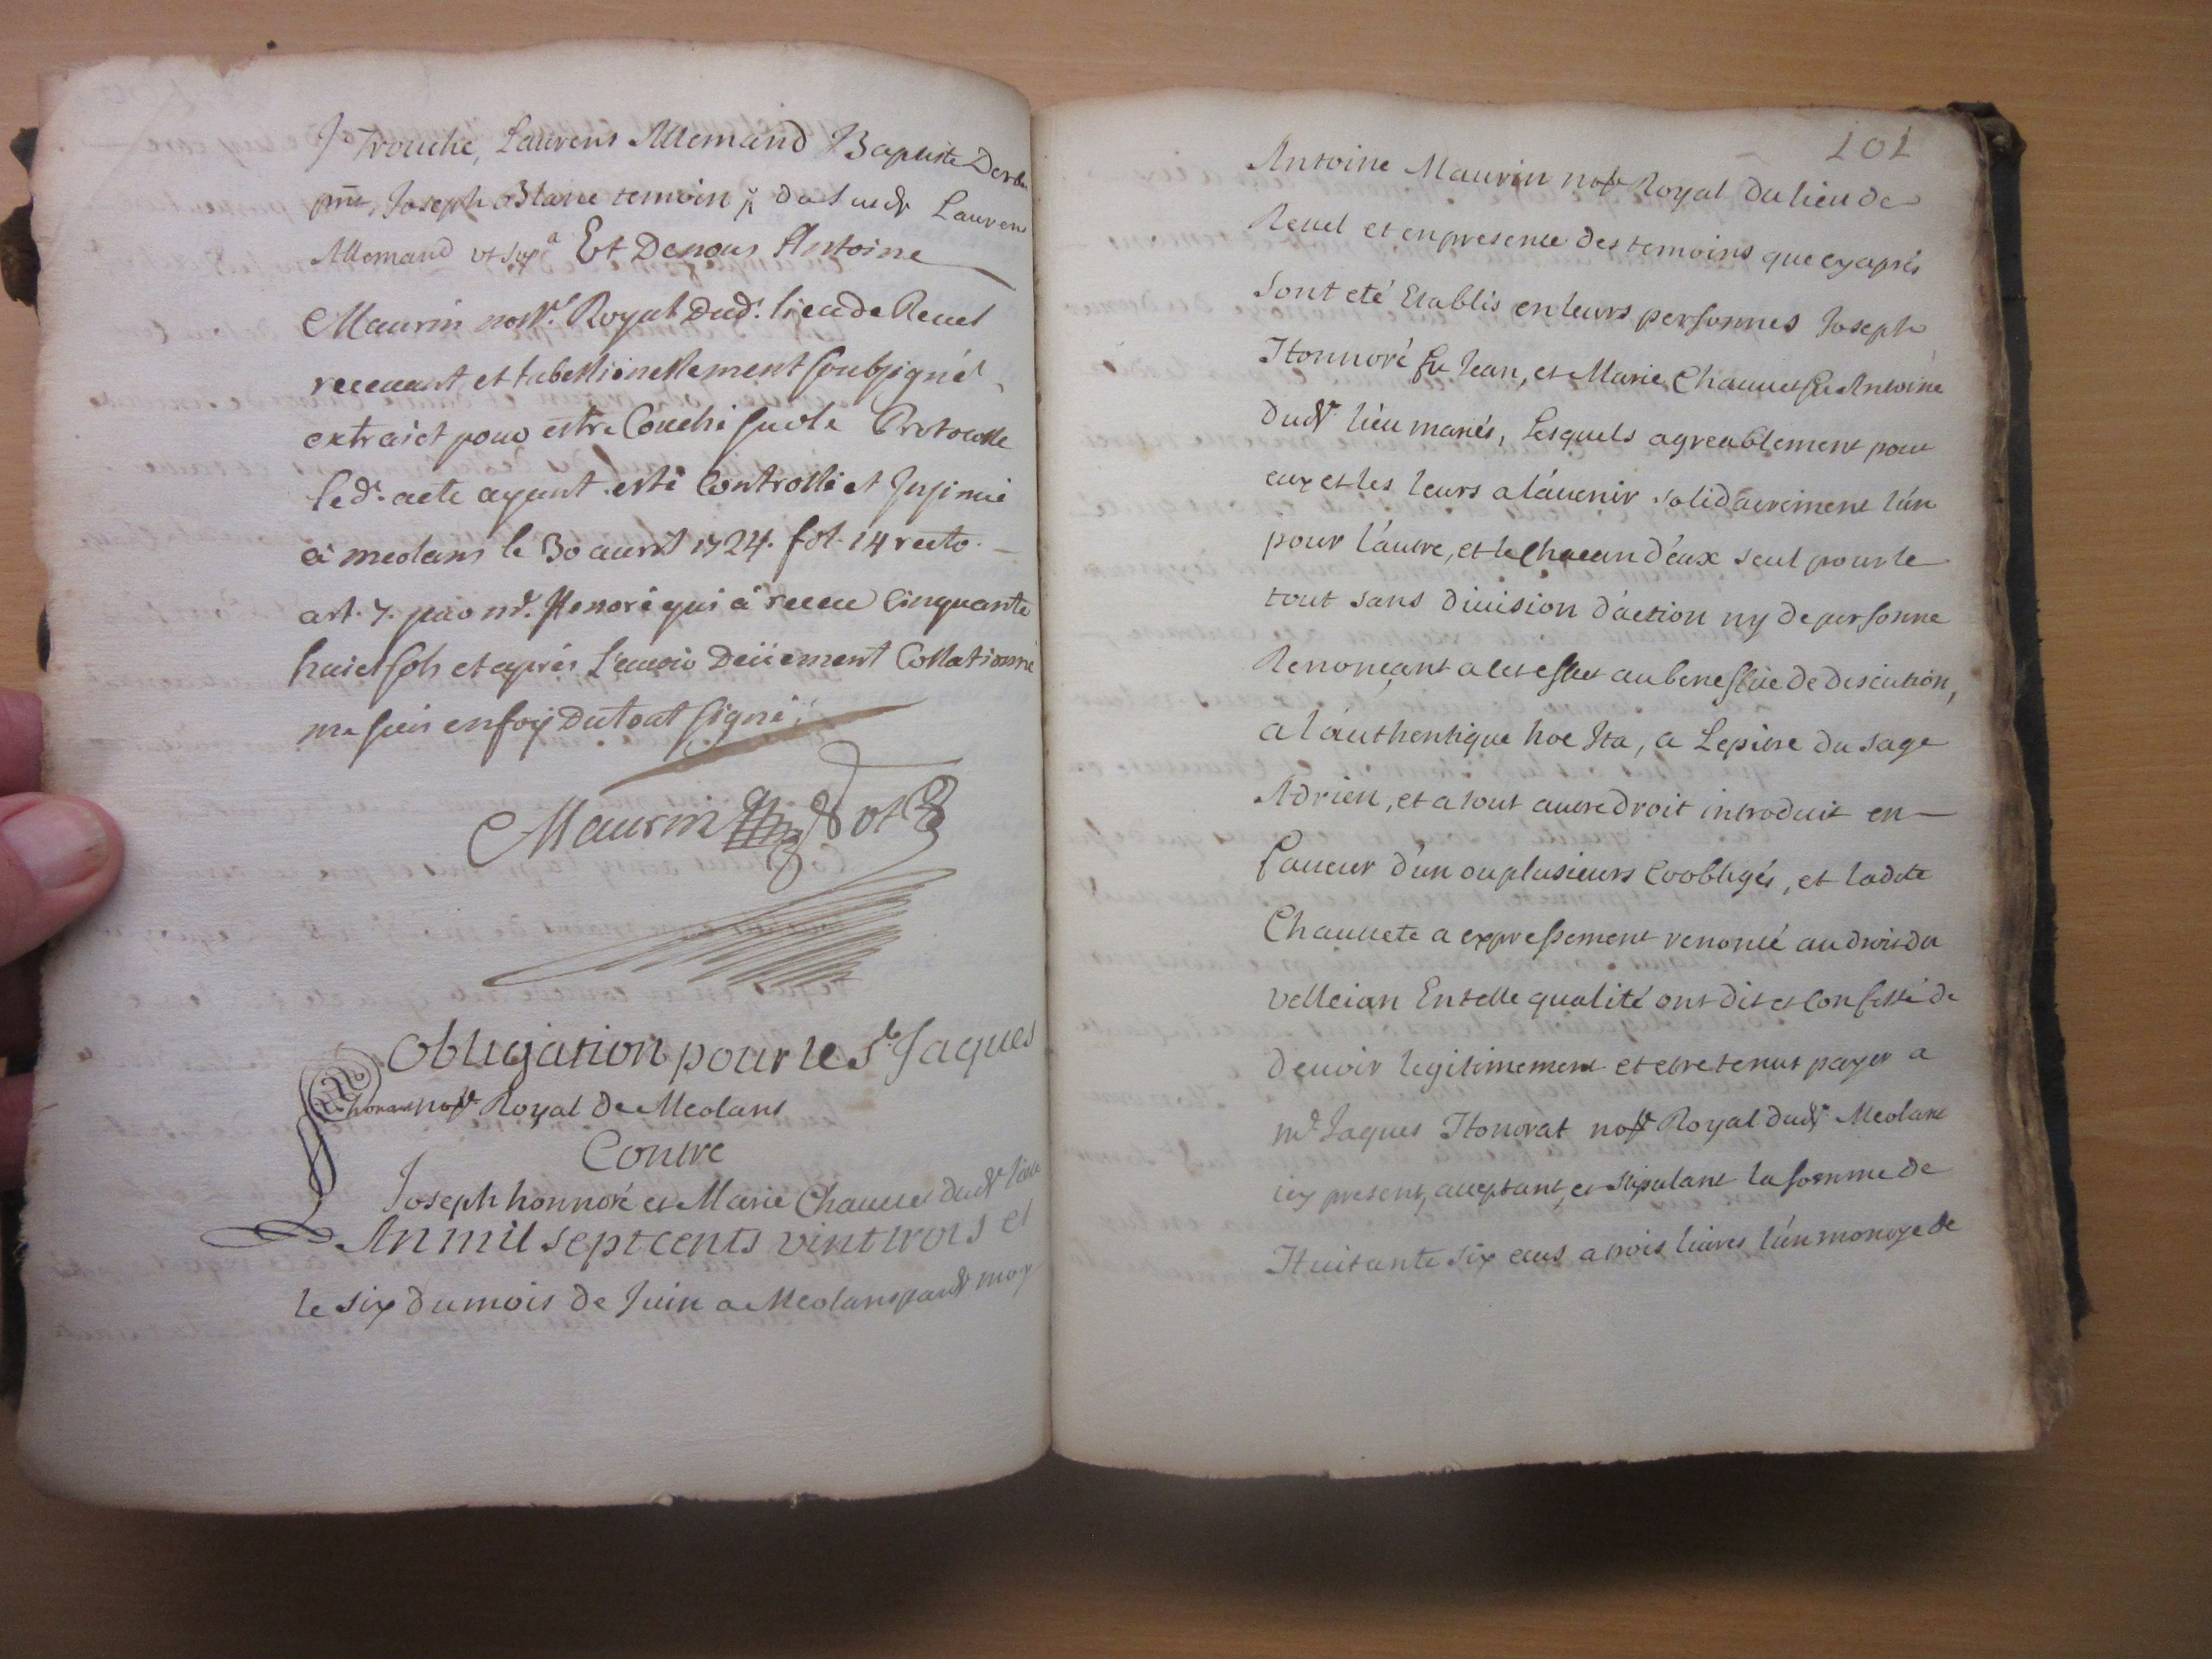 J Trouche, Laurens Allemand J Baptiste
pnt, Joseph Blanc temoin dud Laurens
Allemand vt supª Et Denous Antoine
Maurin nore. Royal Dud. lieu de Revel
recevant et tabellionellement soubsigné
extraict pour estre Couché su ole Protocolle
led. acte ayant esté Controllé et Insinué
à meolans le 30 avril 1724. fol. 14 recto.
art. 7. par mr. Honoré qui a receu Cinquante
huict sols et aprés L'avoir Deüement Collationné
me suis en foy Du tout signé
Maurin not
Obligation pour le Sr Jaques
honorat nore Royal De Meolans
Contre
Joseph honnoré et Marie Chauvet dudt lieu
An mil sept cents vint trois et
le six du mois de Juin a Meolans pardt moy
101
Antoine Maurin nore Royal Du lieu de
Revel et en presence des temoins que cy aprés
sont eté Etablis en leurs personnes Joseph
Honnoré fu Jean, et Marie Chauvet fu Antoine
Dudt lieu mariés, Lesquels agreablement pour
eux et les leurs a l'avenir solidairement l'un
pour l'autre, et le Chacun d'eux seul pour le
tout sans division d'action ny de personne
Renonçant a cet effet au benefice De discution,
a l'authentique hoc Ita, a Lepitre du sage
Adrien, et a tout autre droit introduit en
faveur d'un ou plusieurs Coobligés, et ladite
Chauvete a expressement renoncé au droit du
velleian En telle qualité ont dit et Confessé de
devoir legitimement et etre tenus payer a
mr Jaques Honorat nore Royal dudt Meolans
icy present, acceptant, et stipulant la somme de
Huitante six ecus a trois livres l'un monoye de